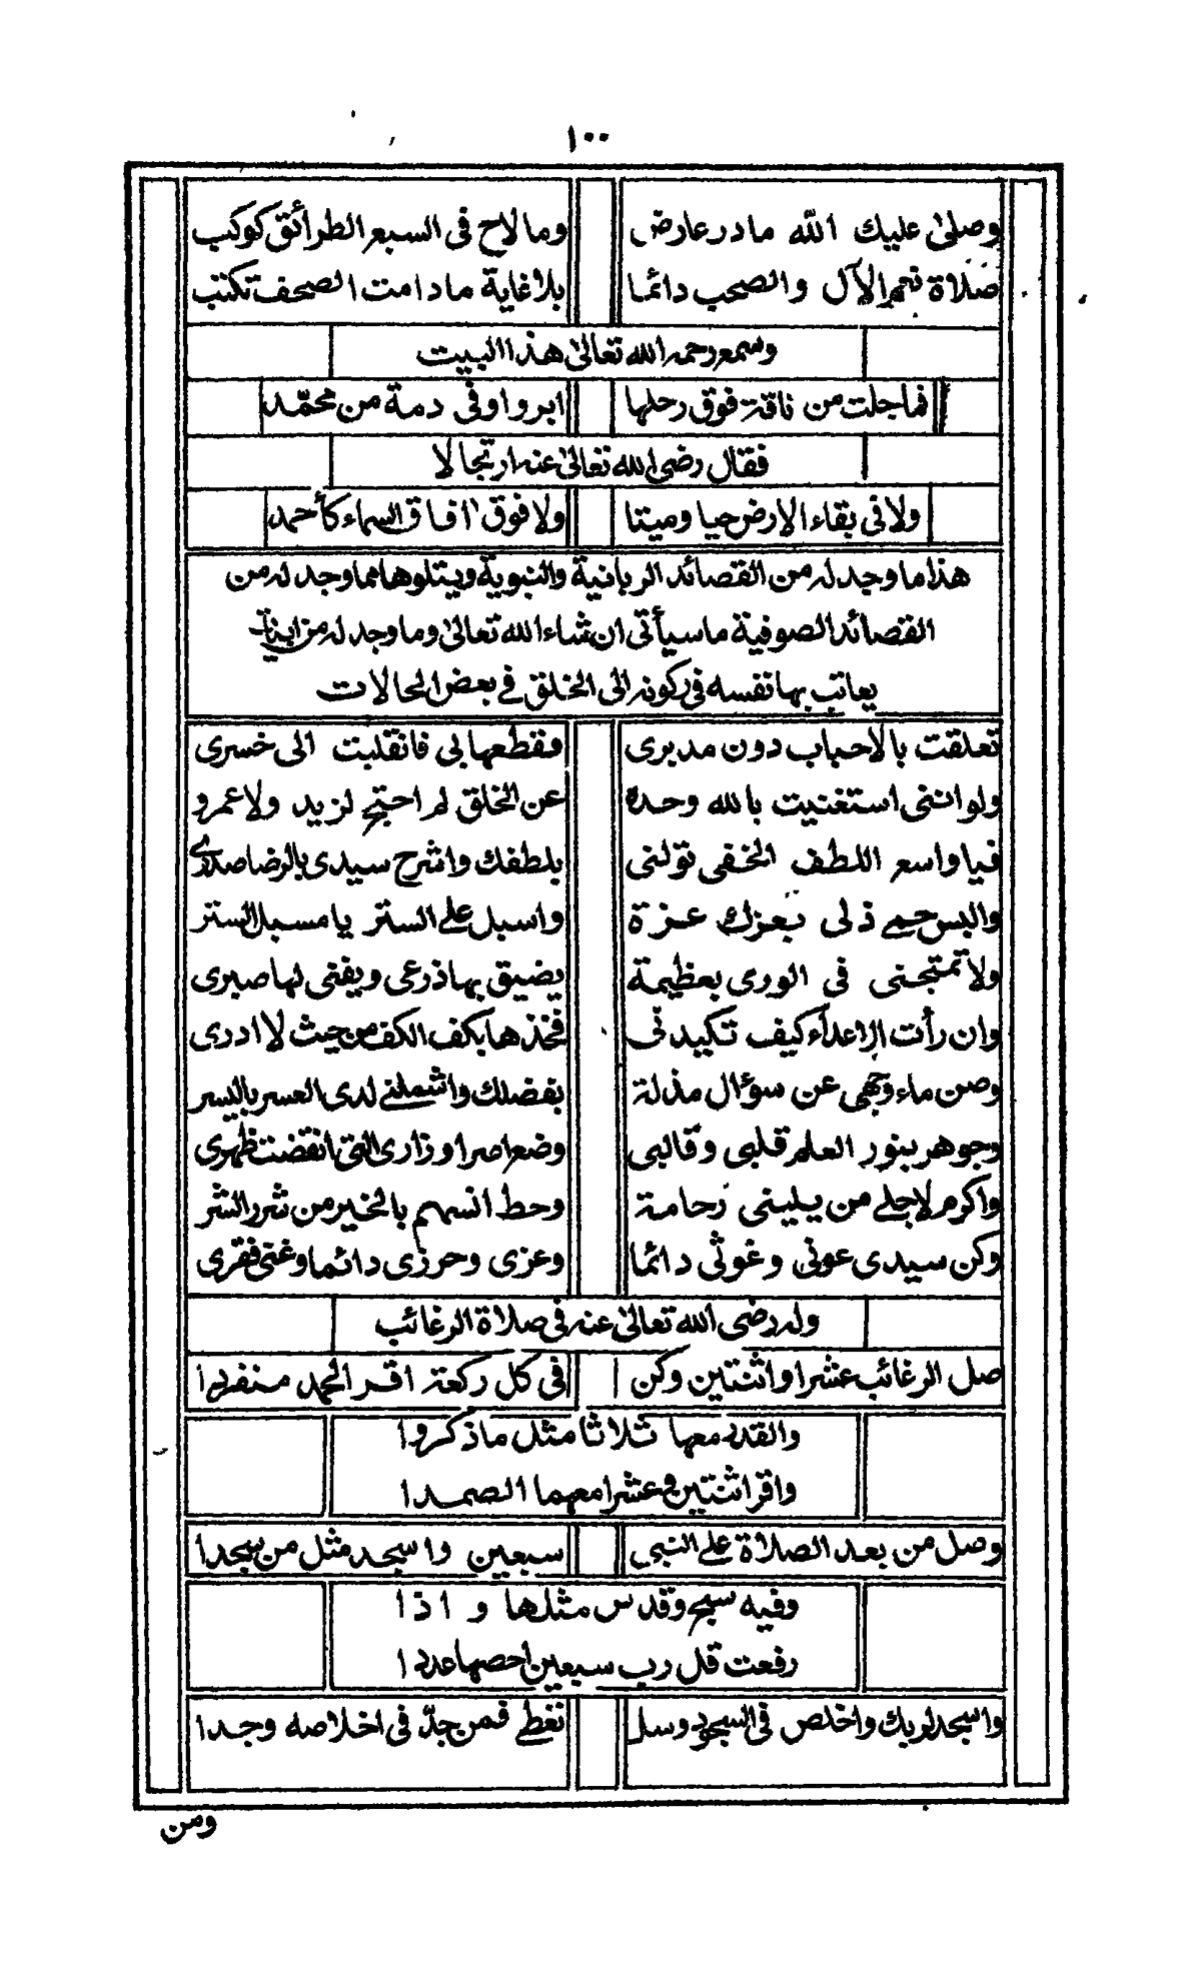 ١٠٠
وصلى عليك الله مادر عارض وما لاح في السبع الطرائق كوكب
صلاة تعم الآل والصحب دائما بلا غاية مادامت الصحف تكتب
وسمع رحمه الله تعالى هذا البيت
فما حملت من ناقة فوق رحلها ابر واوفى دمة من محمّد
فقال رضى الله تعالى عنه ارتجالا
ولا في بقاء الارض حيا وميتا ولا فوق افاق السماء كأحمد
هذا ما وجد له من القصائد الربانية والنبوية ويتلوها مما وجد له من
القصائد الصوفية ما سيأتى ان شاء الله تعالى وما وجد له من ابيات
يعاتب بها نفسه في ركونه الى الخلق في بعض الحالات
تعلقت بالاحباب دون مدبرى فقطعها بي فانقلبت الى خسرى
ولو اننى استغنيت بالله وحده عن الخلق لم احتج لزيد ولا عمرو
فيا واسع اللطف الخفى تولنى بلطفك واشرح سيدى بالرضا صدرى
والبس حمى ذلى بعزك عزة واسبل على الستر يا مسبل الستر
ولا تمتحنى في الورى بعظيمة يضيق بها ذرعى ويفنى لها صبرى
وان رأت الاعداء كيف تكيدنى فخذها بكف الكف من حيث لا ادرى
وصن ماء وجهى عن سؤال مذلة بفضلك واشملنى لدى العسر باليسر
وجوهر بنور العلم قلبى وقالبى وضع اصر اوزارى التى انقضت ظهرى
واكرم لاجلى من يلينى رحامة وحط انسهم بالخير من شرر الشر
وكن سيدى عونى وغوثى دائما وعزى وحرزى دائما وغنى فقرى
وله رضى الله تعالى عنه في صلاة الرغائب
صل الرغائب عشرا واثنتين وكن في كل ركعة اقر الحمد منفردا
والقدر معها ثلاثا مثل ما ذكروا
واقر اثنتين وعشرا معهما الصمدا
وصل من بعد الصلاة على النبى سبعين واسجد مثل من سجدا
وفيه سبح وقدس مثلها و اذا
رفعت قل رب سبعين احصها عددا
واسجد لربك واخلص في السجود وسل تعطى فمن جدّ في اخلاصه وجدا
ومن